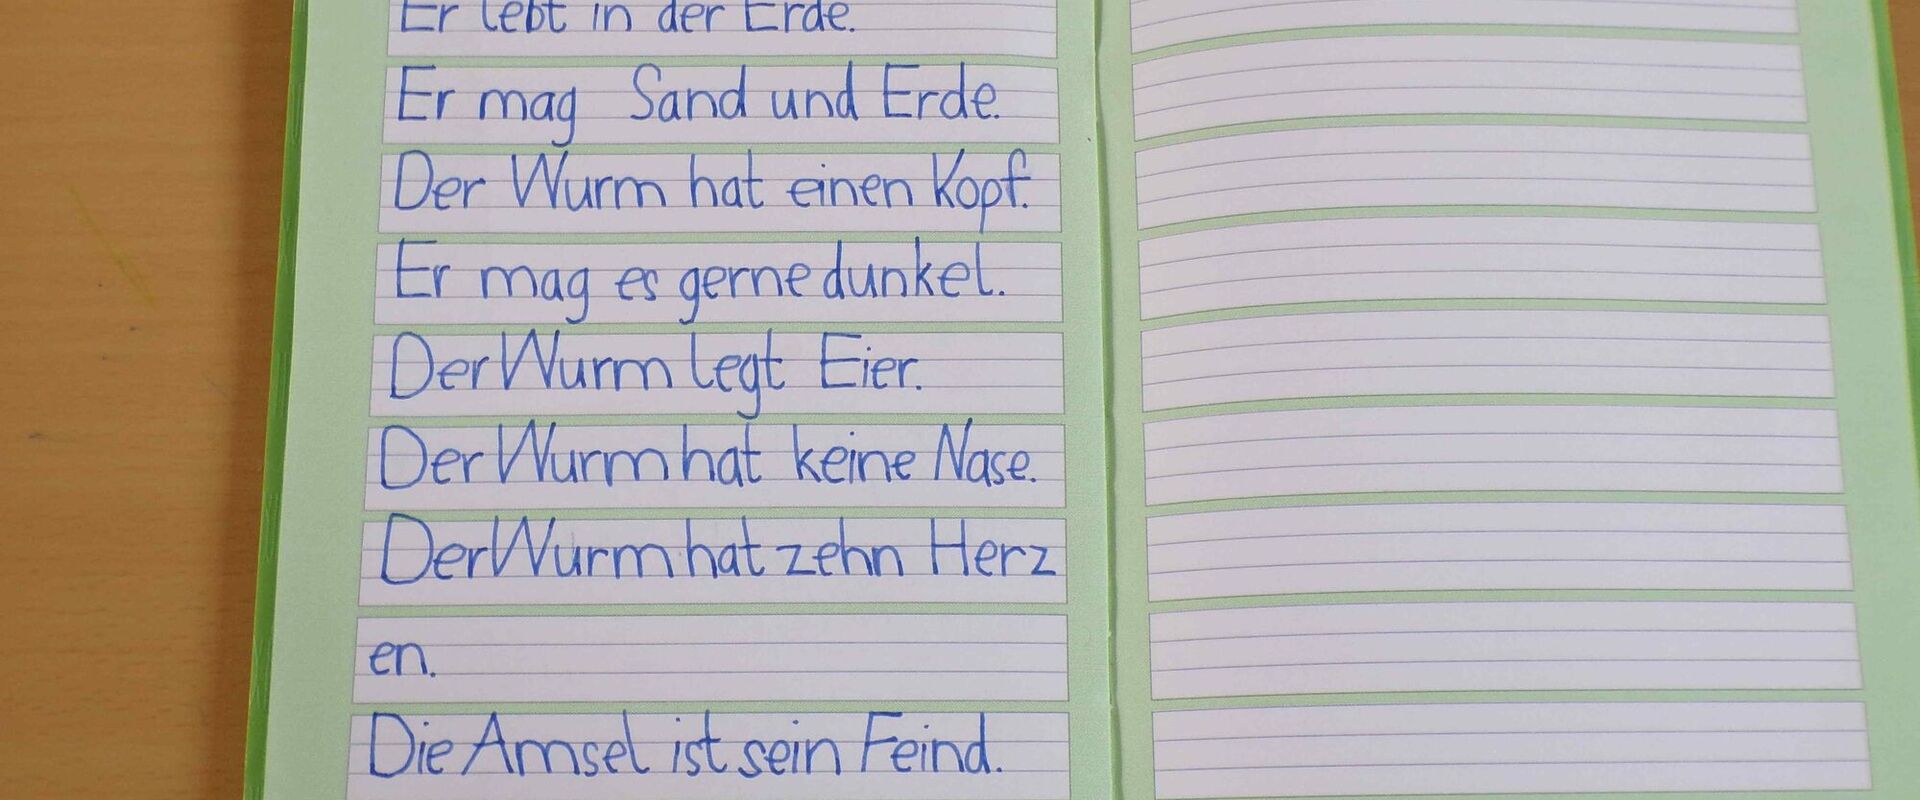 Er lebt in der Erde.
Er mag Sand und Erde.
Der Wurm hat einen Kopf.
Er mag es gerne dunkel.
Der Wurm legt Eier.
Der Wurm hat keine Nase.
Der Wurm hat zehn Herz
en.
Die Amsel ist sein Feind.